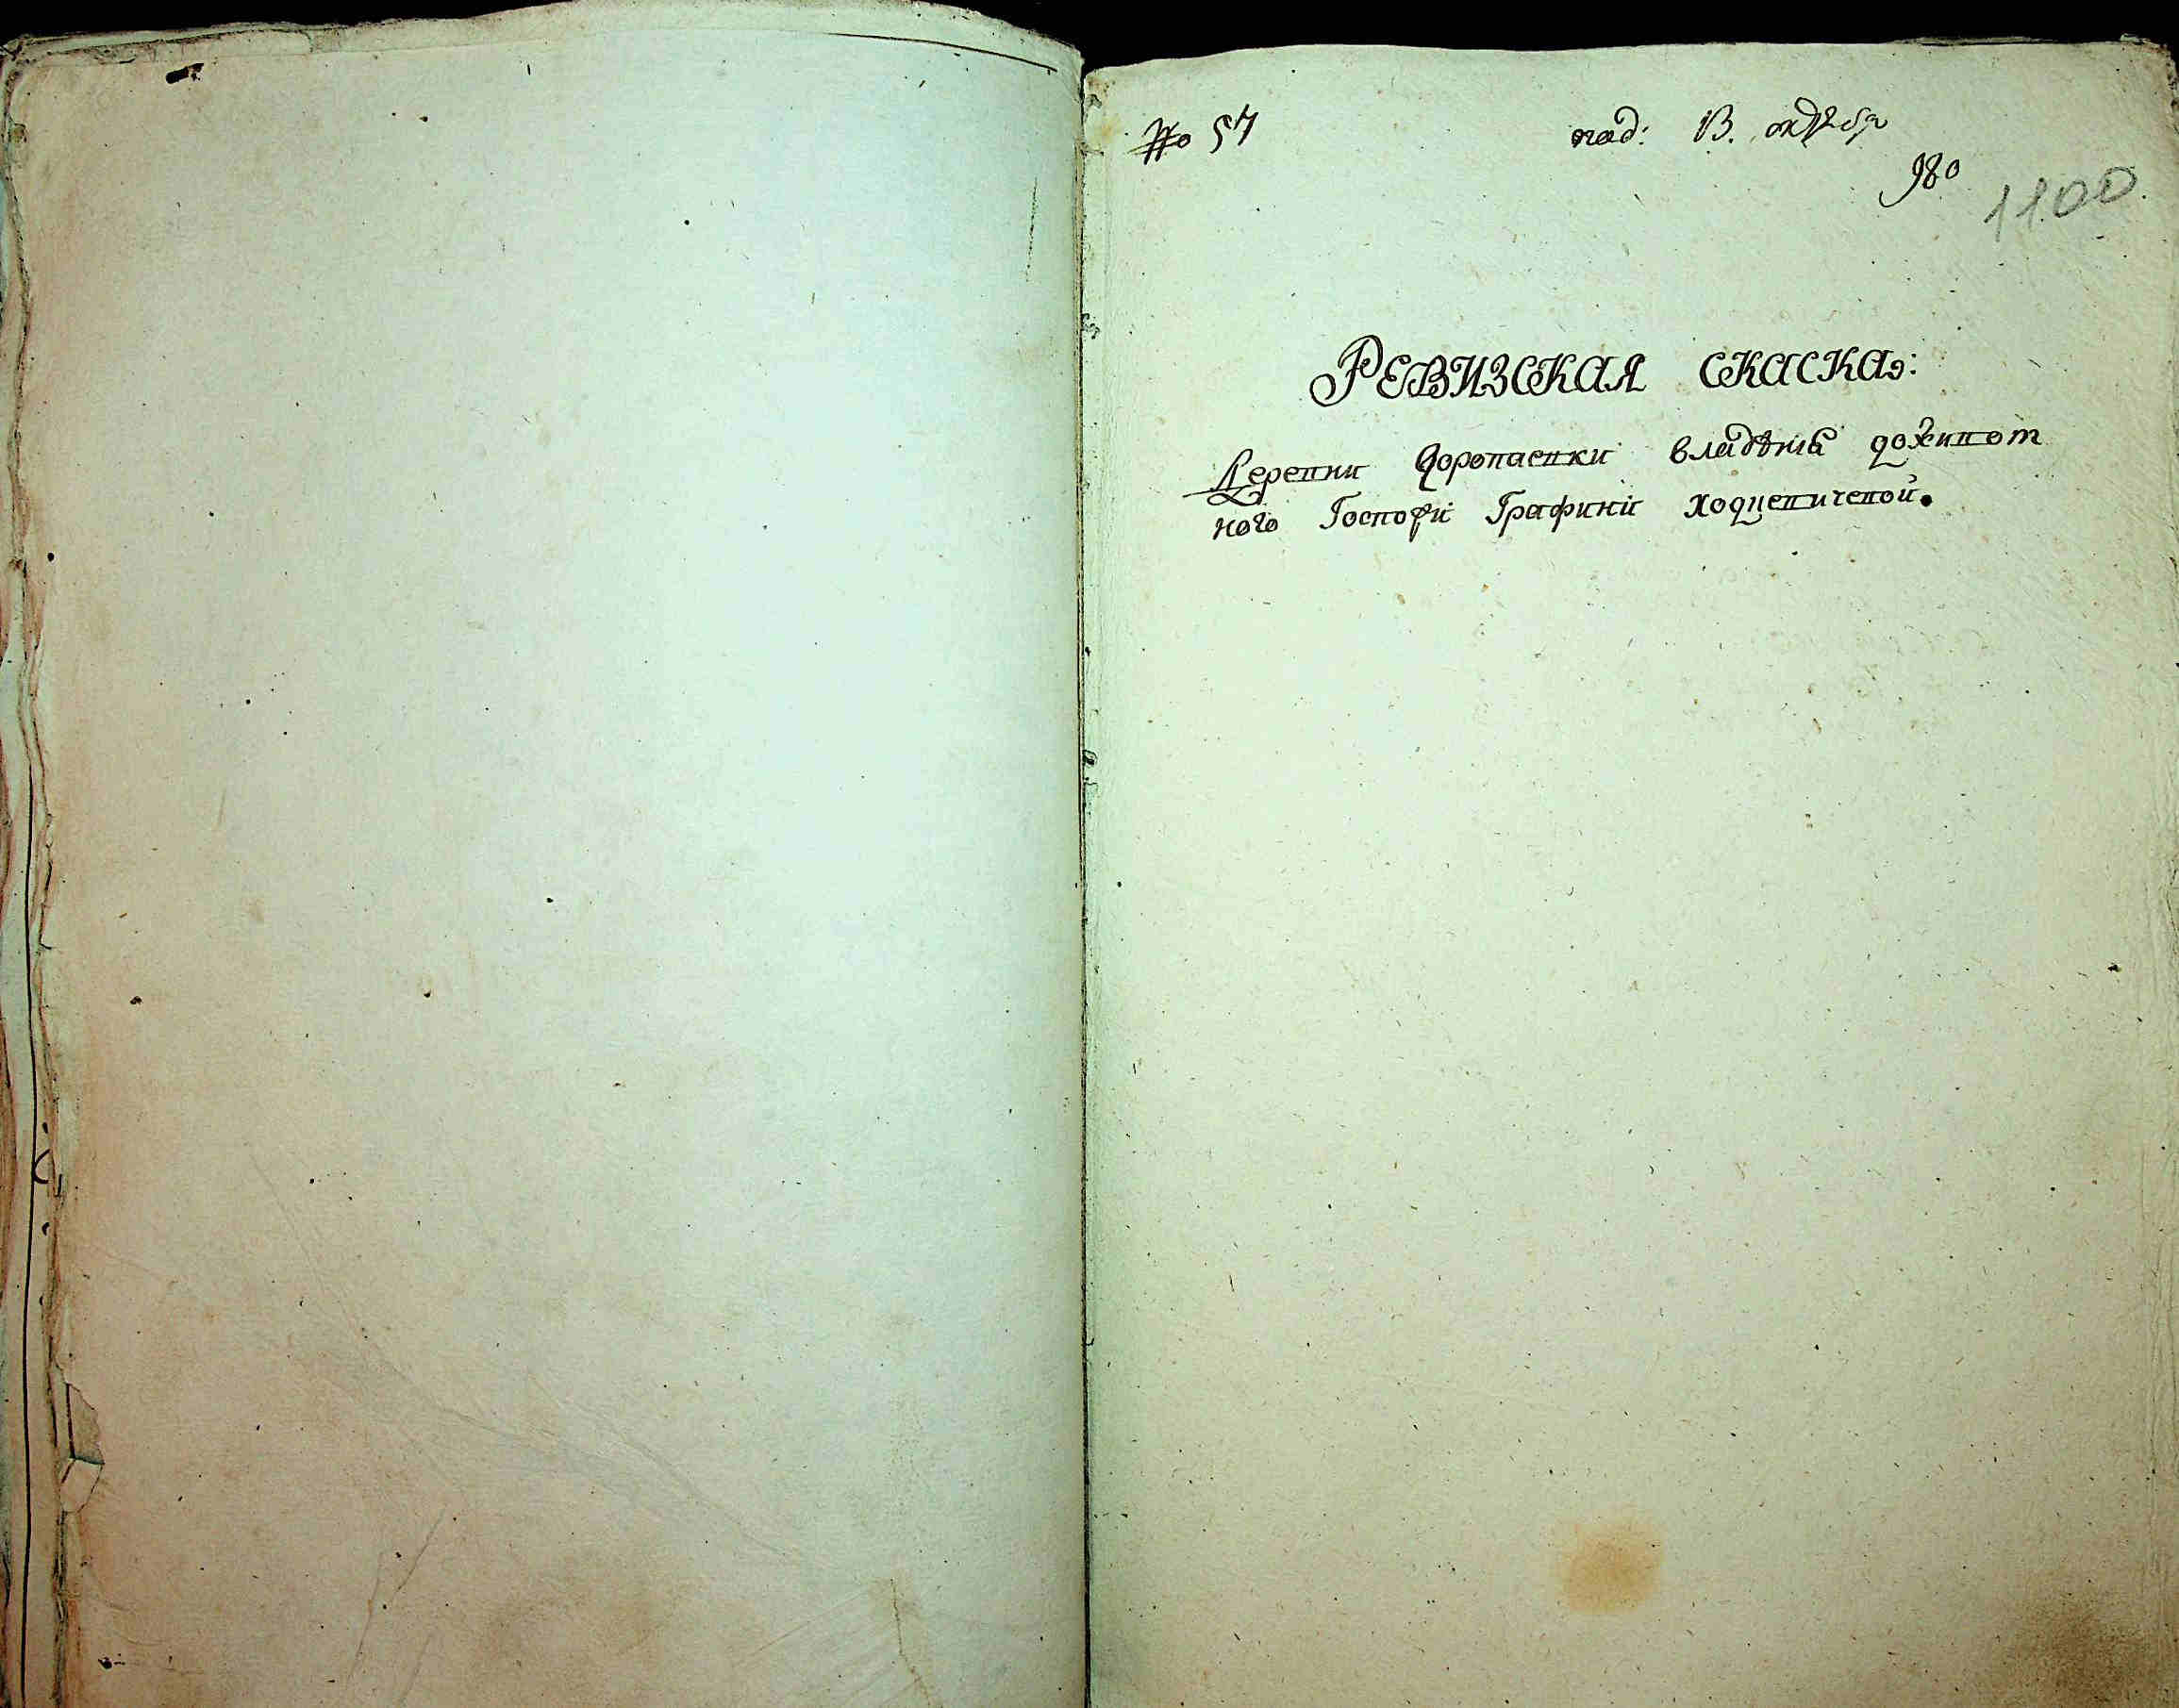 № 57
под: 13. октября
980
1100.
РЕВИЗСКАЯ СКАСКА:
Деревни Доропаевки владѣния доживот
ного Госпожи Графини Ходкевичевой.